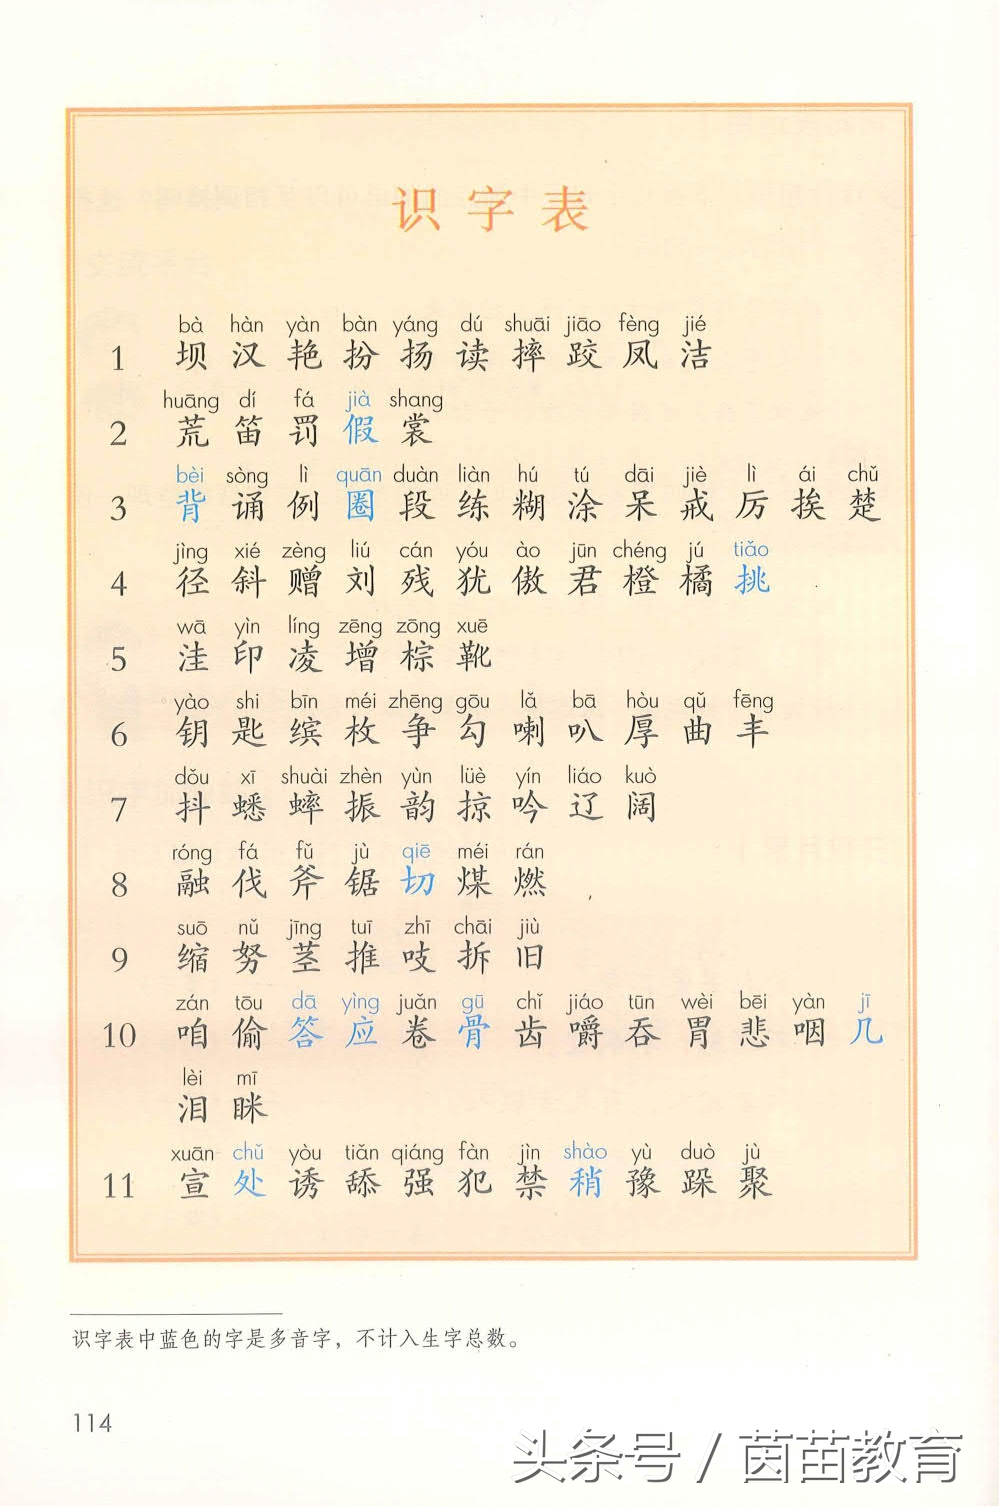 识字表
bà hàn yàn bàn yáng dú shuāi jiāo fèng jié
1 坝 汉 艳 扮 扬 读 摔 跤 凤 洁
huāng dí fá jià shang
2 荒 笛 罚 假 裳
bèi sòng lì quān duàn liàn hú tú dāi jiè lì ái chǔ
3 背 诵 例 圈 段 练 糊 涂 呆 戒 厉 挨 楚
jìng xié zèng liú cán yóu ào jūn chéng jú tiǎo
4 径 斜 赠 刘 残 犹 傲 君 橙 橘 挑
wā yìn líng zēng zōng xuē
5 洼 印 凌 增 棕 靴
yào shi bīn méi zhēng gōu lǎ bā hòu qǔ fēng
6 钥 匙 缤 枚 争 勾 喇 叭 厚 曲 丰
dǒu xī shuài zhèn yùn lüè yín liáo kuò
7 抖 蟋 蟀 振 韵 掠 吟 辽 阔
róng fá fǔ jù qiē méi rán
8 融 伐 斧 锯 切 煤 燃
suō nǔ jīng tuī zhī chāi jiù
9 缩 努 茎 推 吱 拆 旧
zán tōu dā yìng juǎn gū chǐ jiáo tūn wèi bēi yàn jī
10 咱 偷 答 应 卷 骨 齿 嚼 吞 胃 悲 咽 几
lèi mī
泪 眯
xuān chǔ yòu tiǎn qiáng fàn jìn shào yù duò jù
11 宣 处 诱 舔 强 犯 禁 稍 豫 跺 聚
识字表中蓝色的字是多音字，不计入生字总数。
114
头条号 / 茵苗教育